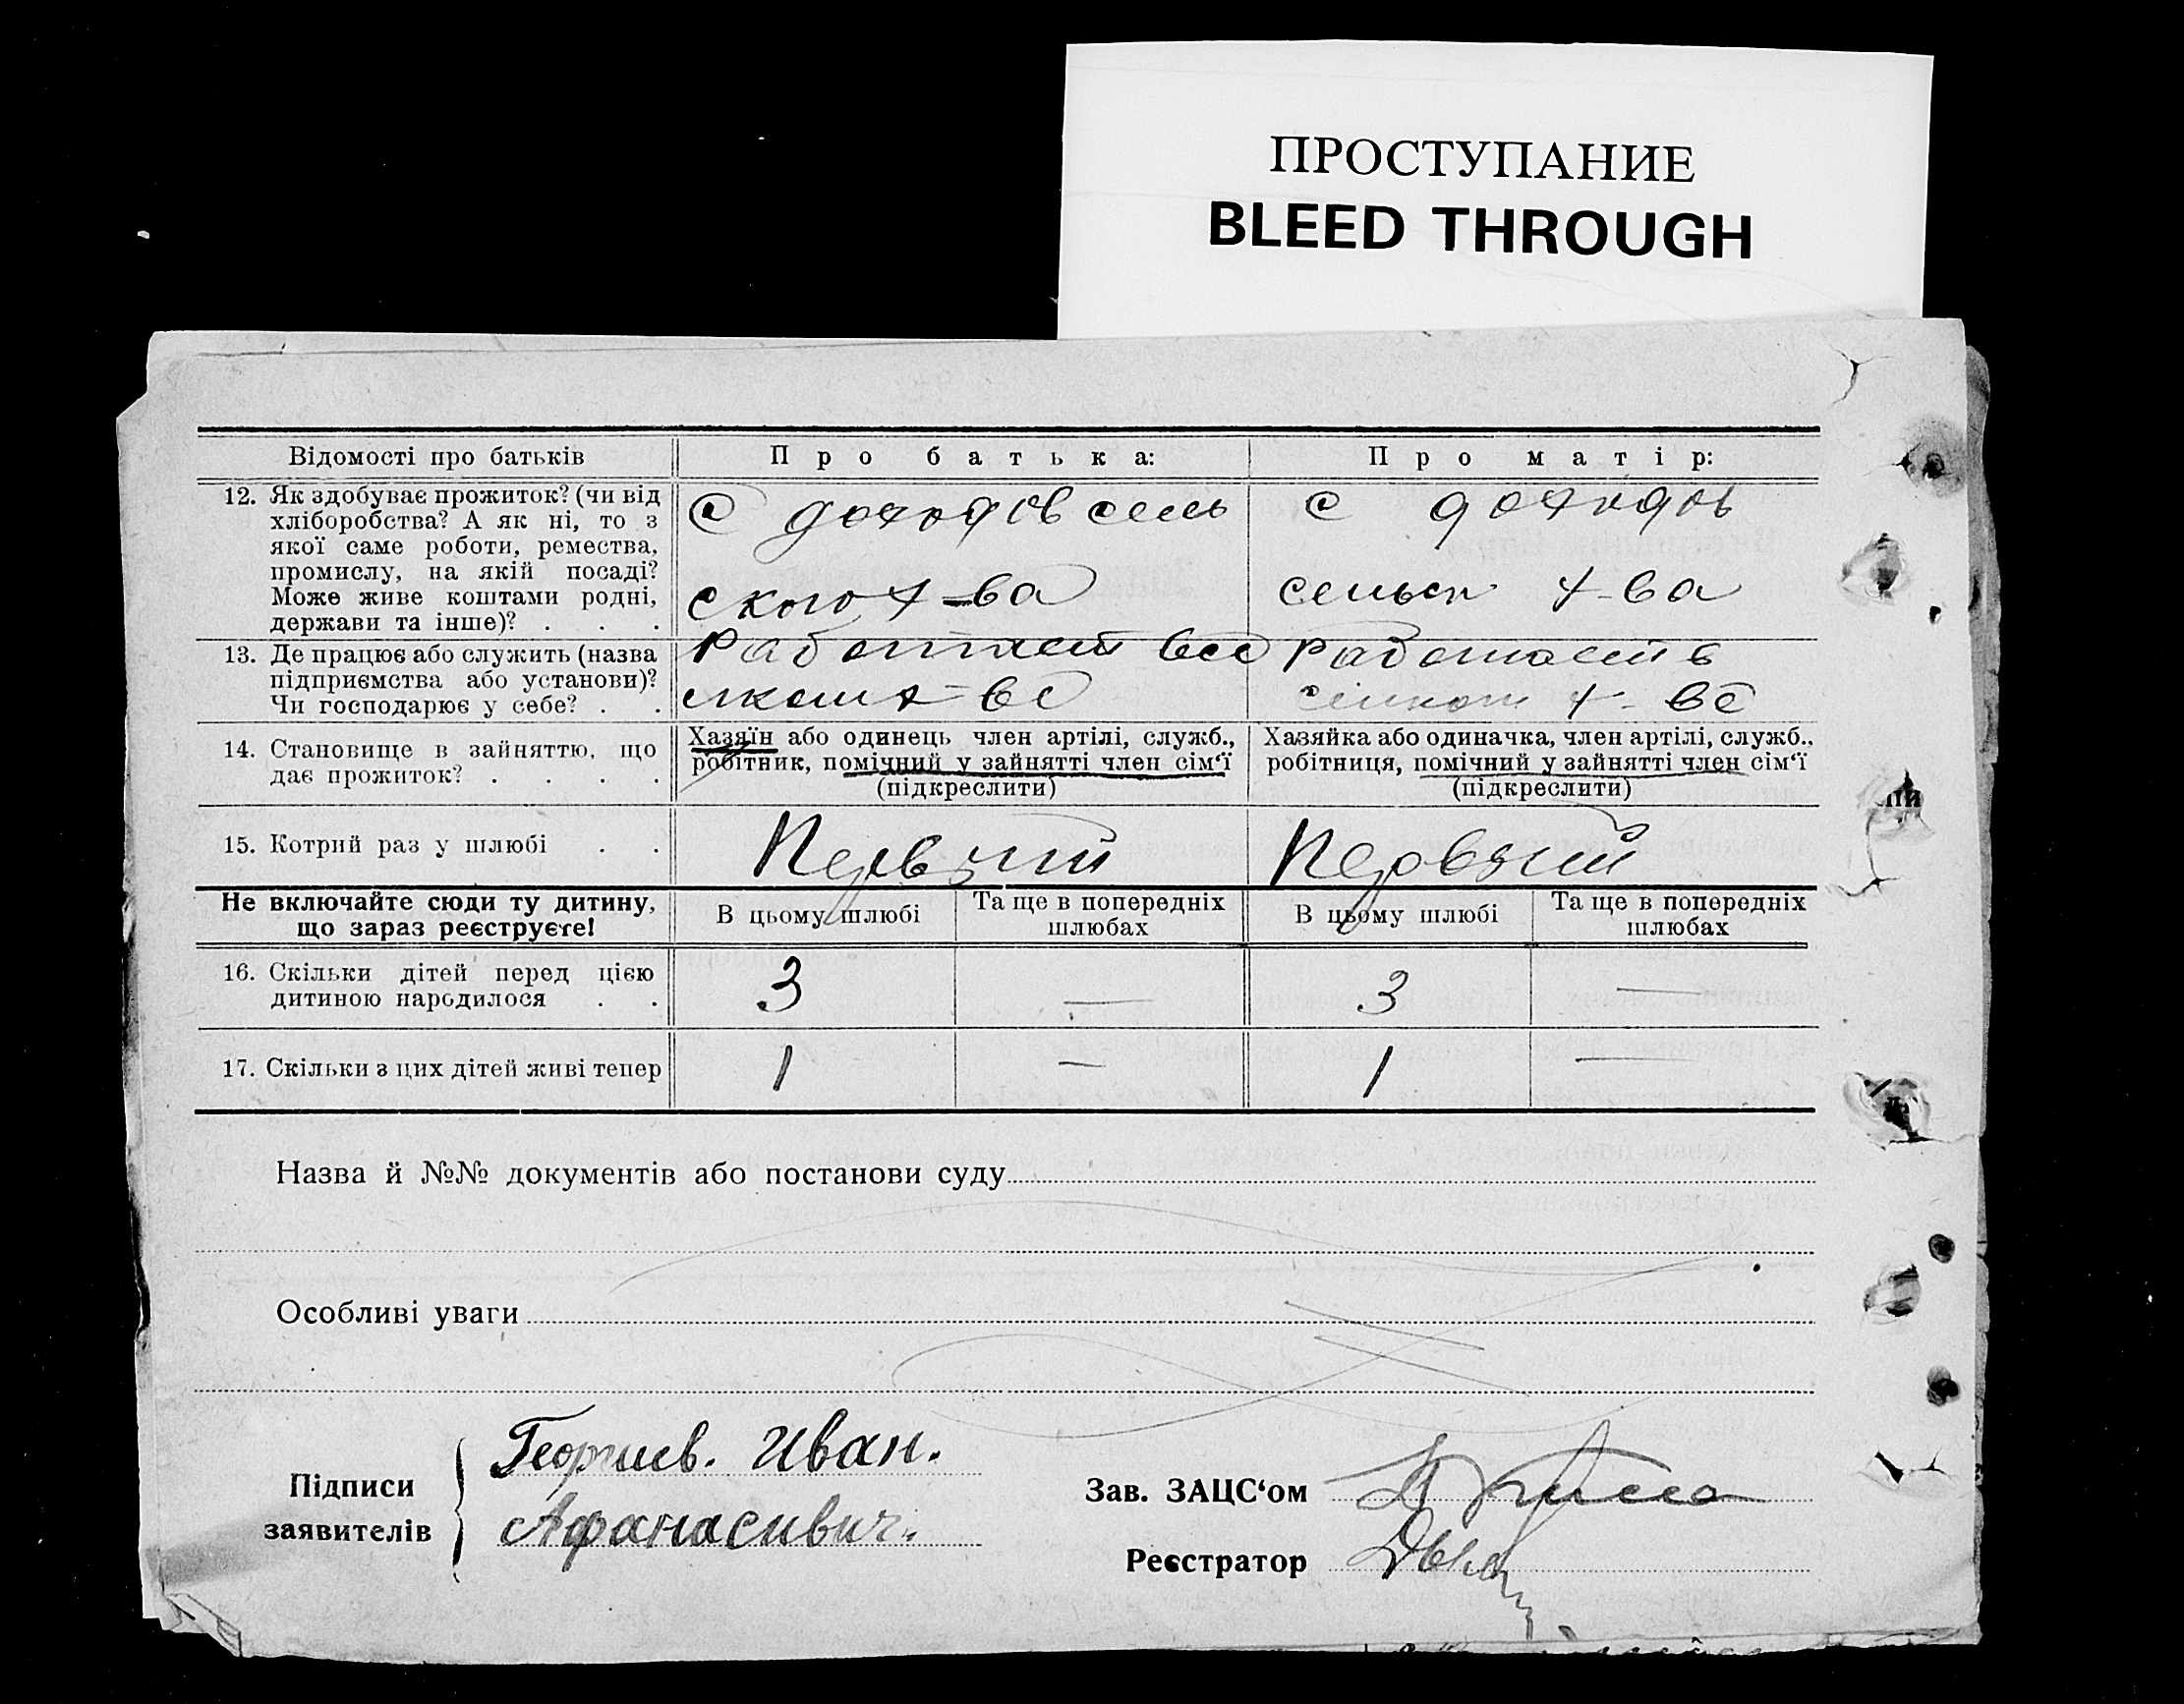 ПРОСТУПАНИЕ
BLEED THROUGH
Відомості про батьків
Про батька:
Про матір:
12. Як здобуває прожиток? (чи від
хліборобства? А як ні, то з
якої саме роботи, ремества,
промислу, на якій посаді?
Може живе коштами родні,
держави та інше)? . . .
С доходов сель
ского х-ва
С доходов
сельск х-ва
13. Де працює або служить (назва
підприємства або установи)?
Чи господарює у себе? . .
Работает
х-ве
Работает в
х-ве
14. Становище в зайняттю, що
дає прожиток? . . . .
Хазяїн або одинець член артілі, служб.,
робітник, помічний у зайнятті член сім‘ї
(підкреслити)
Хазяйка або одиначка, член артілі, служб.,
робітниця, помічний у зайнятті член сім‘ї
(підкреслити)
15. Котрий раз у шлюбі . .
Первый
Первый
Не включайте сюди ту дитину,
що зараз реєструєте!
В цьому шлюбі
Та ще в попередніх
шлюбах
В цьому шлюбі
Та ще в попередніх
шлюбах
16. Скільки дітей перед цією
дитиною народилося . .
3
—
3
—
17. Скільки з цих дітей живі тепер
1
—
1
—
Назва й №№ документів або постанови суду
Особливі уваги
Підписи
заявителів
Георгиев. Иван.
Афанасивич.
Зав. ЗАЦС‘ом
Реєстратор